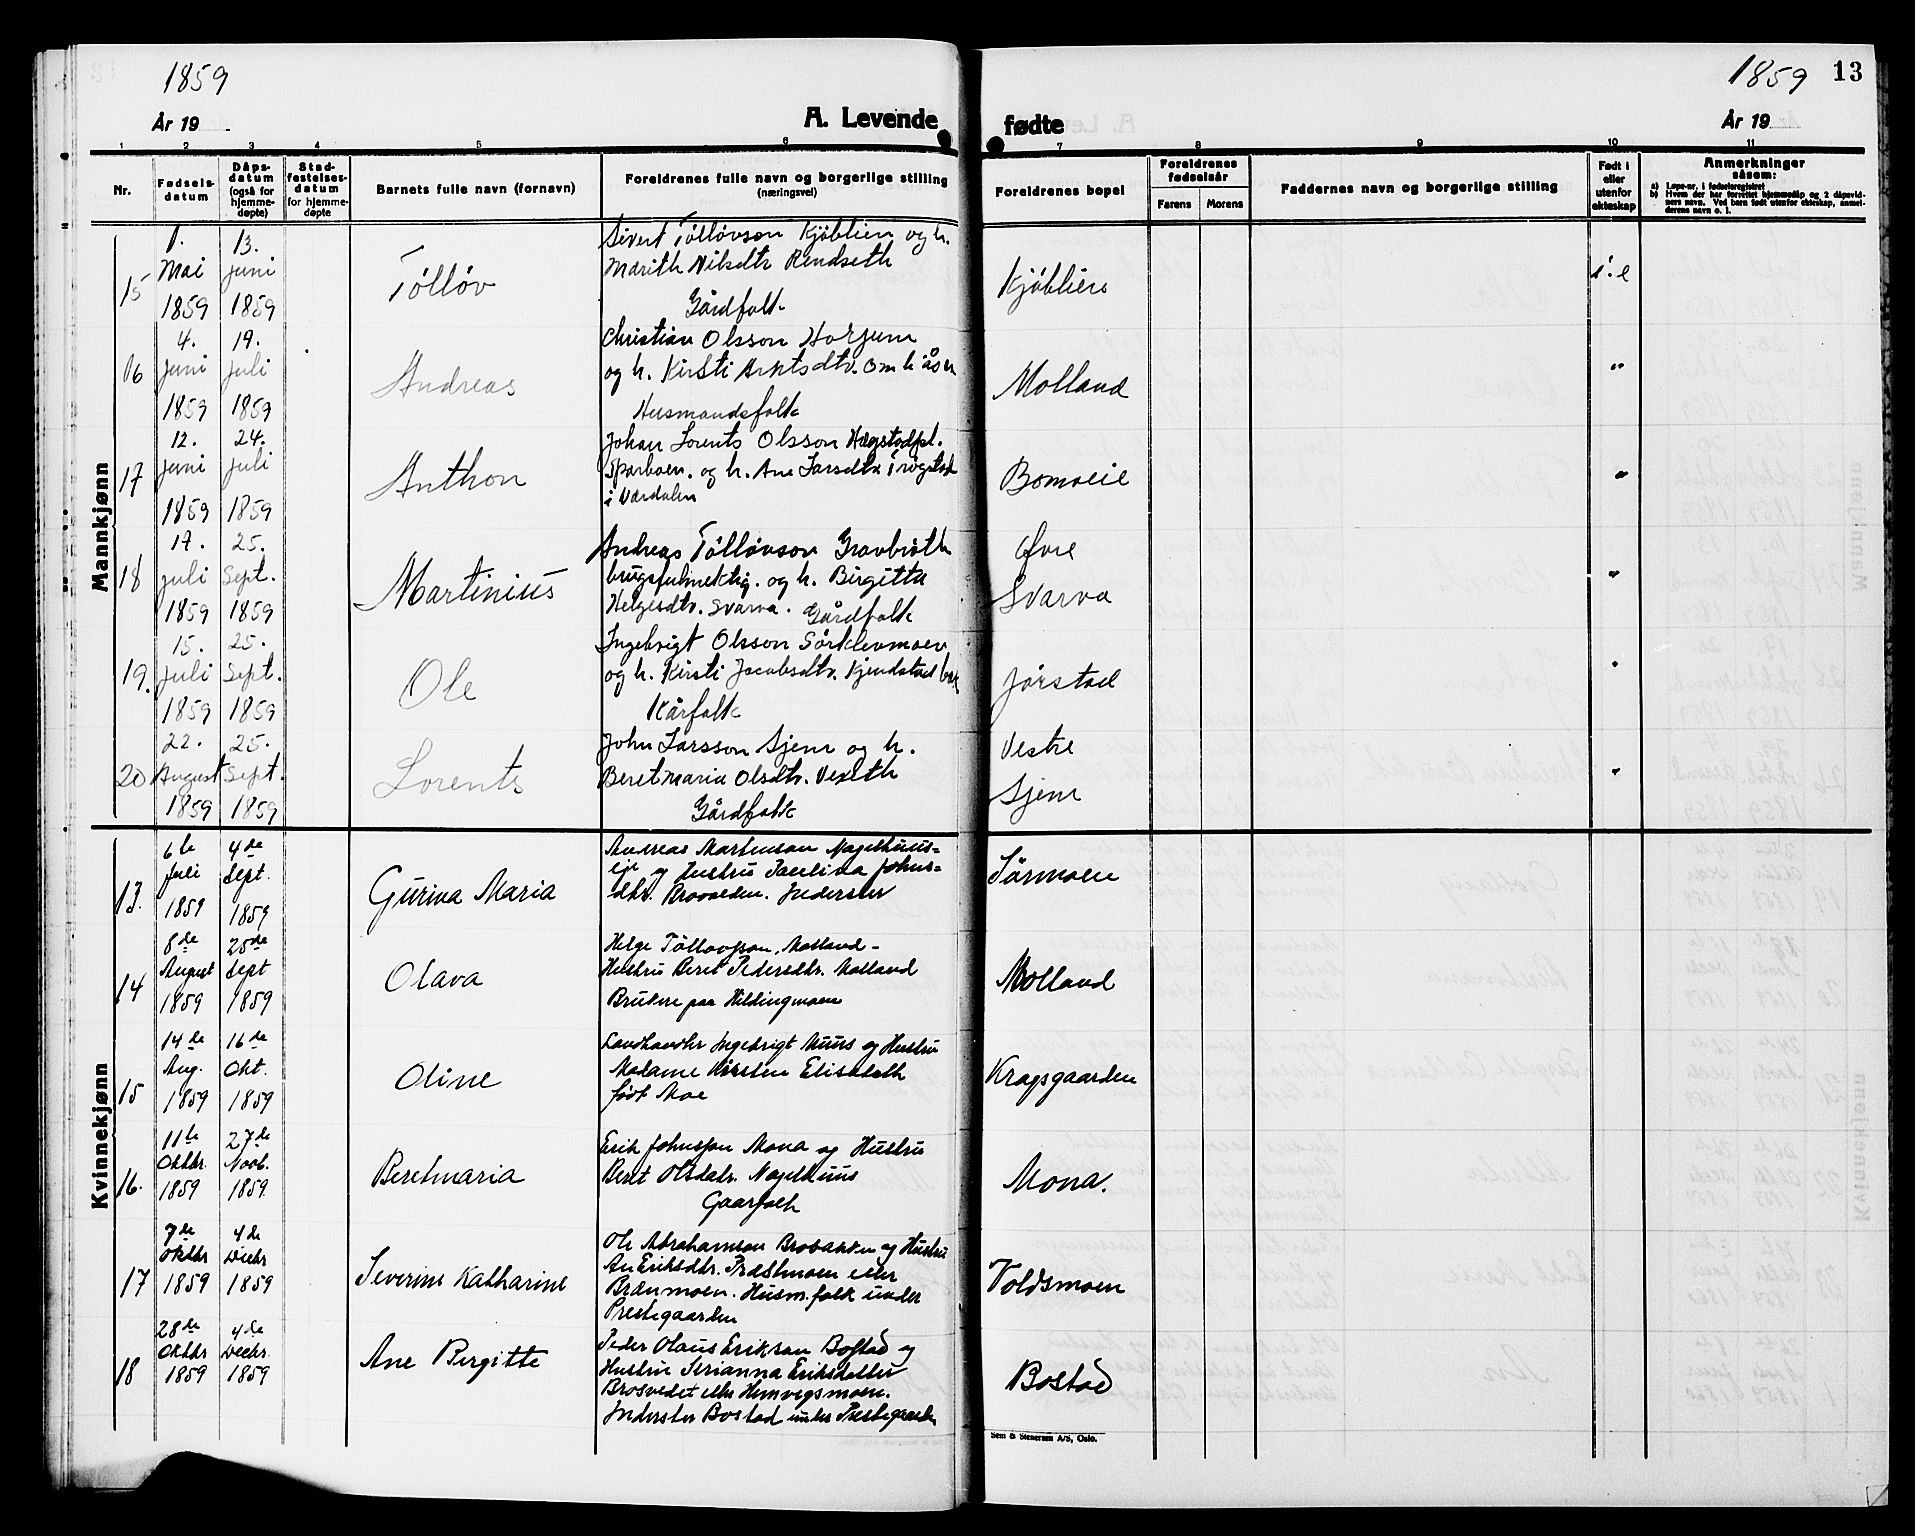 1859
År 19
A. Levende
1859 13
År 19
fødte
1 2 3 4 5 6 7 8 9 10 11
Nr.
Fødsels-
datum
Dåps-
datum
(også for
hjemme-
døpte)
Stad-
festelses-
datum
for hjemme-
døpte
Barnets fulle navn (fornavn)
Foreldrenes fulle navn og borgerlige stilling
(næringsvei)
Foreldrenes bopel
Foreldrenes
fødselsår
Farens Morens
Faddernes navn og borgerlige stilling
Født i
eller
utenfor
ekteskap
Anmerkninger
såsom:
a) Løpe-nr. i fødselsregistret
b) Hvem der har forrettet hjemmedåp og 2 dåpsvid-
ners navn. Ved barn født utenfor ekteskap, anmel-
derens navn o. l.
Mannkjønn
15
1.
Mai
1859
13.
Juni
1859
Tølløv
Sivert Tølløvson Kjøblien og h.
Marith Nilsdtr Rendseth
Gårdfolk
Kjøbliers
i.e
16
4.
Juni
1859
19.
Juli
1859
Andreas
Christian Olsson Horjem
og h. Kirsti
Husmandsfolk
Molland
"
17
12.
Juni
1859
24.
Juli
1859
Anthon
Johan Lorents Olsson Hægstadpl.
Sparboen. og h. Ane Larsdtr Trøgstad
i Værdalen
Bomoeie
"
18
17.
Juli
1859
25.
Sept.
1859
Martinius
Andreas Tølløvson Gravbrøth
brugsfulmektig. og h. Birgitta
Helgesdtr. Svarva. Gårdfolk
Øvre
Svarva
"
19.
15.
Juli
1859
25.
Sept.
1859
Ole
Ingebrigt Olsson Sørklevmoen
og h. Kirsti Jacobsdtr. Kjendstad
Kårfolk
Jørstad
"
20
22.
August
1859
25.
Sept.
1859
Lorents
John Larsson Sjem og h.
Beretmaria Olsdtr. Vexeth
Gårdfolk
Vestre
Sjem
"
Kvinnekjønn
13.
6te
Juli
1859
4de
Sept.
1859
Gurina Maria
Andreas Martenson Nagelhuus-
eje og Hustru Paulina Johns-
dtr. Inderster
Sørmoen
14
8de
August
1859
25de
Sept
1859
Olava
Helge Tøllovsson. Molland-
Hustru Beret Pedersdtr. Molland
Brukere paa Hildingmoen
Molland
15
14de
Aug.
1859
16de
Okt.
1859
Oline
Landhandlr Ingebrigt Muus og Hustru
Madame Kirsten Elisabeth
født Moe
Kragsgaarden
16.
11te
Oktbr.
1859
27de
Novb.
1859.
Beretmaria
Erik Johnsson Mona og Hustru
Beret Olsdatr. Nagelhuus
Gaarfolk
Mona.
17
7de
Oktbr
1859
4de
Decbr
1859
Severine Katharine
Ole Abrahamson Brobakken og Hustru
An Eriksdtr. Præstmoen eller
Brænmoen. Husm.folk under
Prestegaarden
Voldsmoen
18
28de
Oktbr
1859
4de
Decbr.
1859
Ane Bergitte
Peder Olaus Erikson Bostad og
Hustru Serianna Eriksdatter
Brosvedet eller Hemvegsmoen.
Inderster Bostad under Prestegaarden
Bostad
Sem & Stenersen A/S, Oslo.